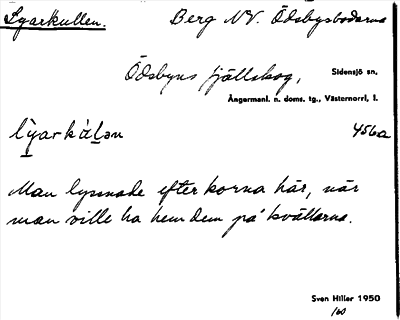 Lyarkullen. Berg NV. Ödsbysbodarna
Ödsbyns fjällskog, Sidensjö sn,
Ångermanl. n. doms. tg., Västernorrl. l.
456a
Man lyssnade efter korna här, när
man ville ha hem dem på kvällarna.
Sven Hiller 1950